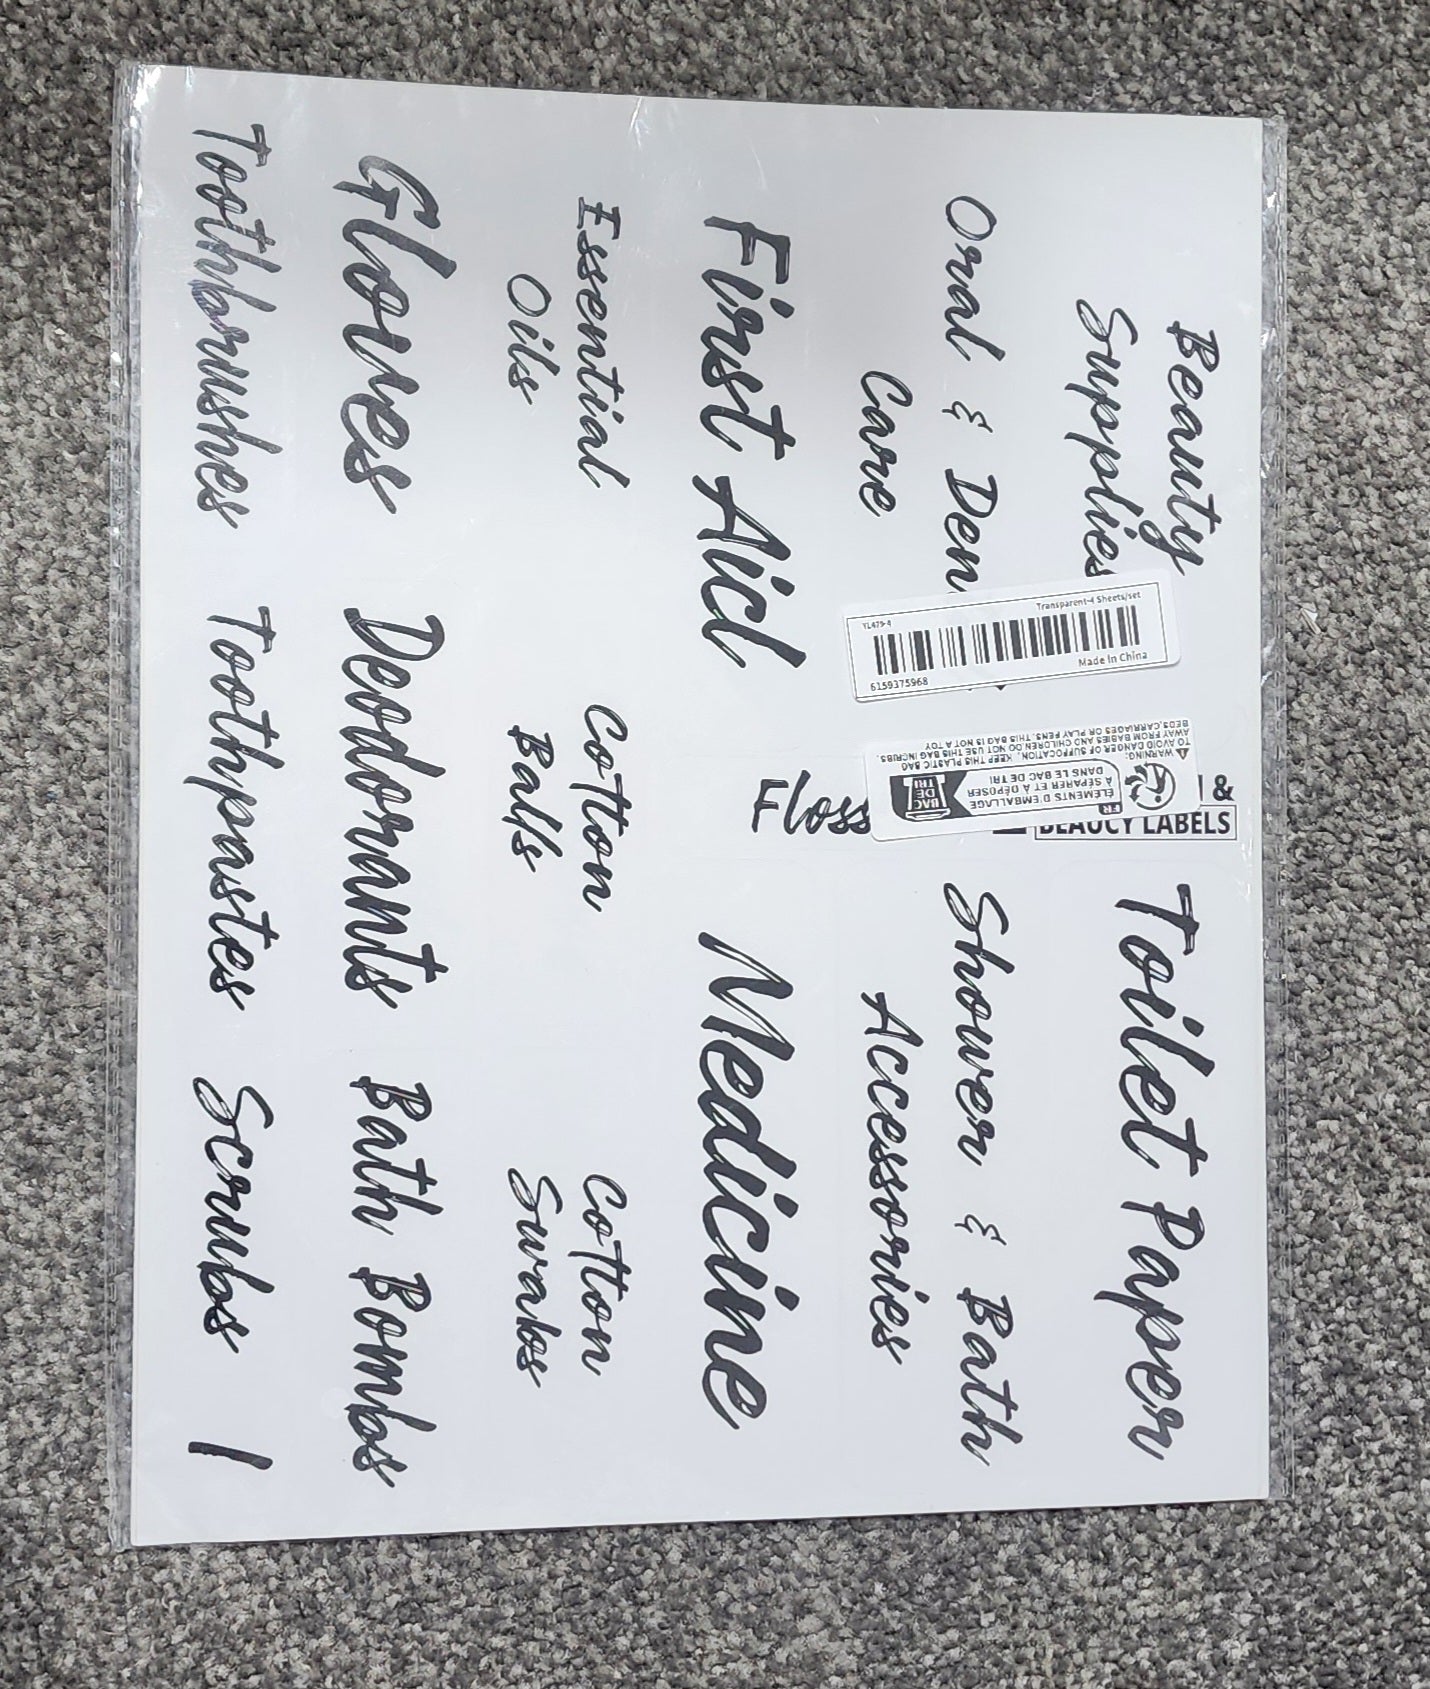 Beauty
Supplies
Toilet Paper
&
LABELS
Oral & Den
Care
Shower & Bath
Accessories
Floss
First Aid
Medicine
Essential
Oils
Cotton
Balls
Cotton
Swabs
Gloves
Deodorants
Bath Bombs
Toothbrushes
Toothpastes
Scrubs
Transparent-4 Sheets/set
YL479-4
Made In China
6159375968
FR
ÉLÉMENTS D'EMBALLAGE
À SÉPARER ET À DÉPOSER
DANS LE BAC DE TRI
BAC
DE
TRI
WARNING:
TO AVOID DANGER OF SUFFOCATION, KEEP THIS PLASTIC BAG
AWAY FROM BABIES AND CHILDREN. DO NOT USE THIS BAG IN CRIBS,
BEDS, CARRIAGES OR PLAY PENS. THIS BAG IS NOT A TOY